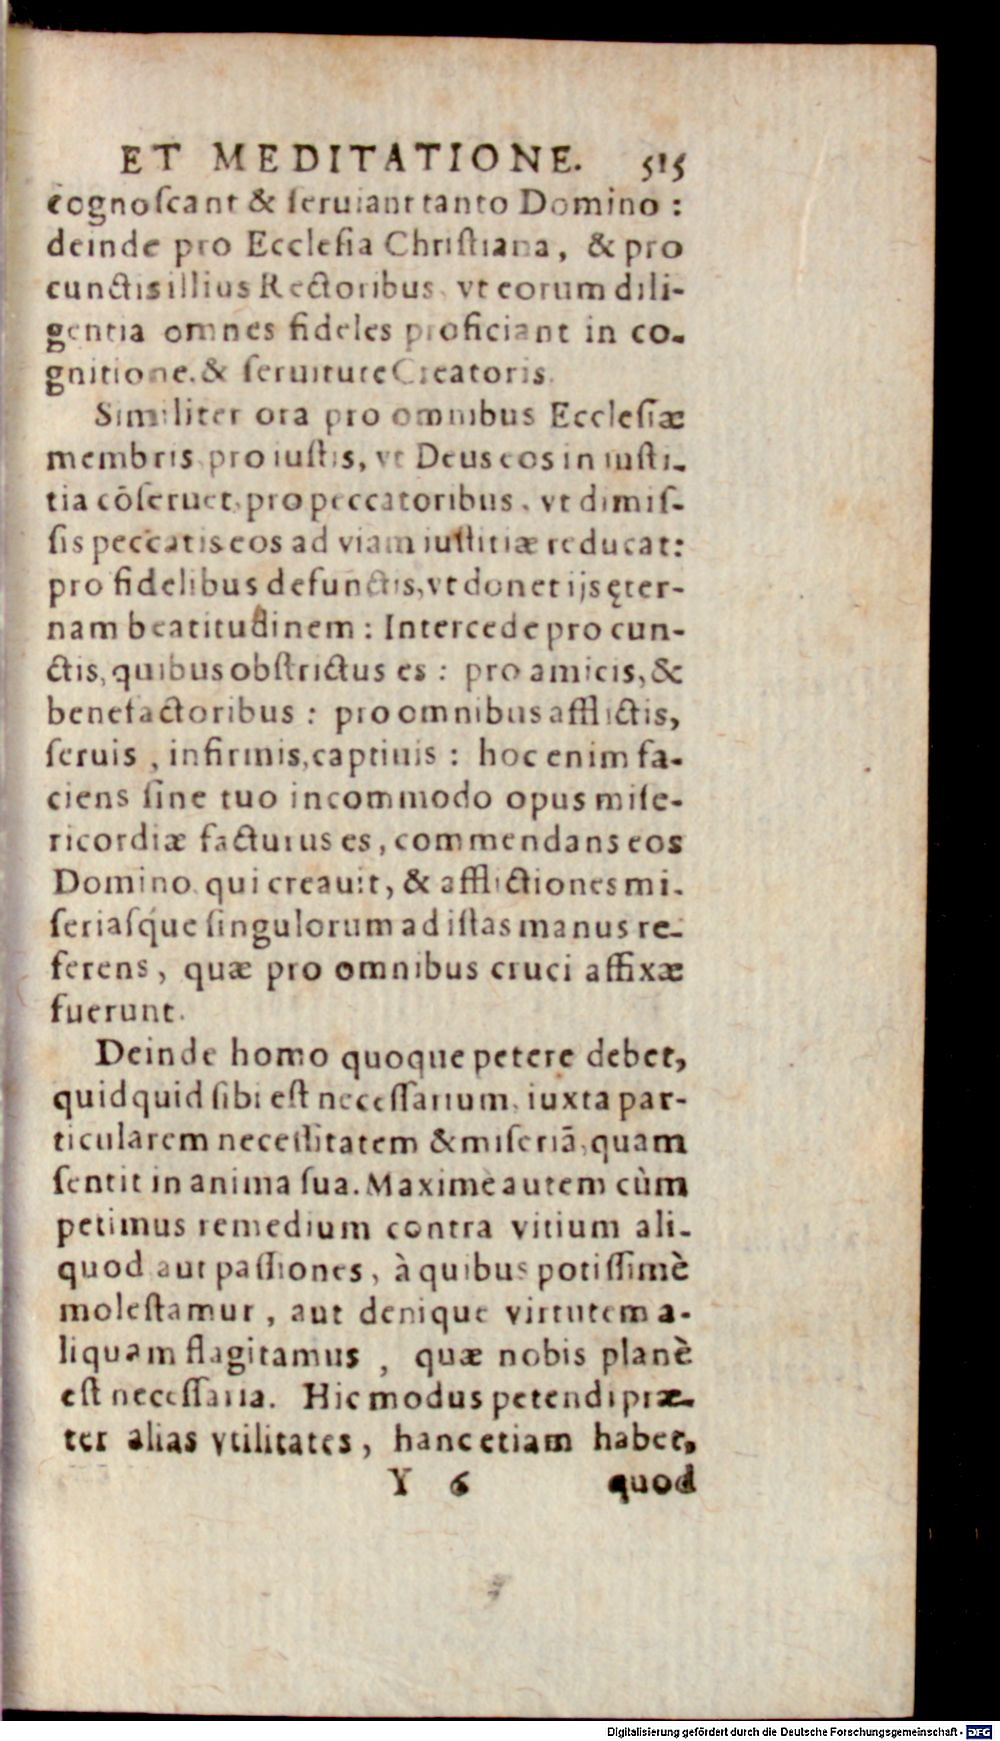 ET MEDITATIONE. 515
cognoſcant & ſeruiant tanto Domino :
deinde pro Eccleſia Chriſtiana, & pro
cunctis illius Rectoribus, vt eorum dili-
gentia omnes fideles proficiant in co-
gnitione, & ſeruitute Creatoris.
Similiter ora pro omnibus Eccleſiæ
membris, pro iuſtis, vt Deus eos in iuſti-
tia cōſeruet, pro peccatoribus, vt dimiſ-
ſis peccatis eos ad viam iuſtitiæ reducat:
pro fidelibus defunctis, vt donet ijs ęter-
nam beatitudinem : Intercede pro cun-
ctis, quibus obſtrictus es : pro amicis, &
benefactoribus : pro omnibus afflictis,
ſeruis, infirmis, captiuis : hoc enim fa-
ciens ſine tuo incommodo opus miſe-
ricordiæ facturus es, commendans eos
Domino qui creauit, & afflictiones mi-
ſeriaſq́ue ſingulorum ad iſtas manus re-
ferens, quæ pro omnibus cruci affixæ
fuerunt.
Deinde homo quoque petere debet,
quidquid ſibi eſt neceſſarium, iuxta par-
ticularem neceſſitatem & miſeriā, quam
ſentit in anima ſua. Maximè autem cùm
petimus remedium contra vitium ali-
quod aut paſſiones, à quibus potiſſimè
moleſtamur, aut denique virtutem a-
liquam flagitamus, quæ nobis planè
eſt neceſſaria. Hic modus petendi præ-
ter alias vtilitates, hanc etiam habet,
Y 6 quod
Digitalisierung gefördert durch die Deutsche Forschungsgemeinschaft - DFG